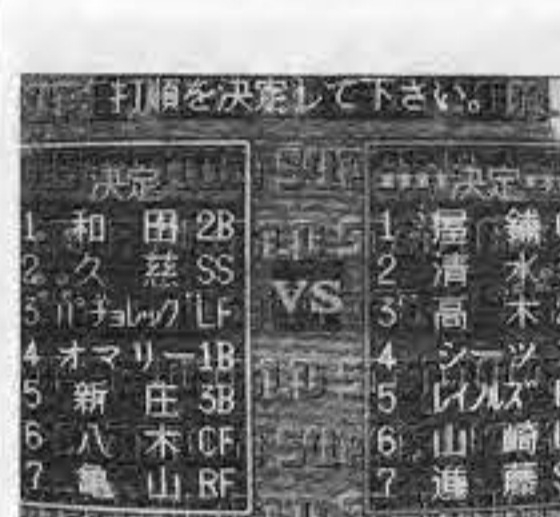 打順を決定して下さい。
決定
1 和田 2B
2 久慈 SS
3 パチョレック LF
VS
4 オマリー 1B
5 新庄 3B
6 八木 CF
7 亀山 RF
決定
1 屋鋪
2 清水
3 高木
4 シーツ
5 レイノルズ
6 山崎
7 進藤